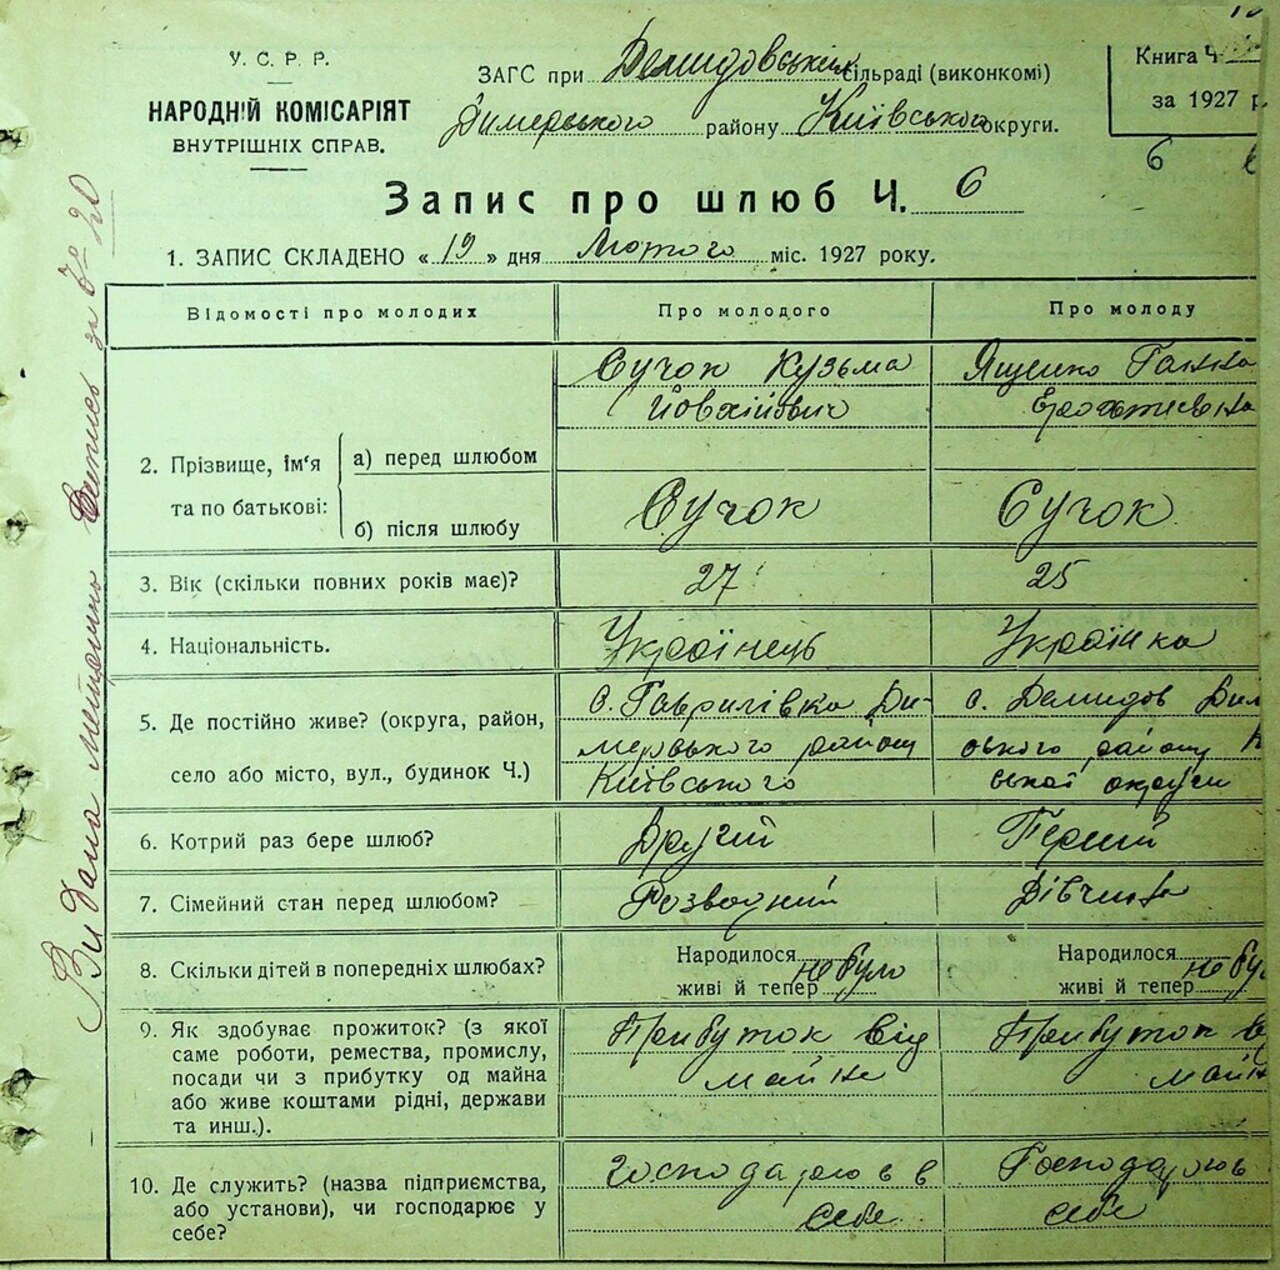 У. С. Р. Р.
НАРОДНІЙ КОМІСАРІЯТ
ВНУТРІШНІХ СПРАВ.
ЗАГС при Демидовській сільраді (виконкомі)
Димерського району Київського округи.
Книга Ч
за 1927 р
6
Запис про шлюб Ч. 6
1. ЗАПИС СКЛАДЕНО « 19 » дня Лютого міс. 1927 року.
Відомості про молодих
Про молодого
Про молоду
2. Прізвище, ім'я та по батькові:
а) перед шлюбом
Сучок Кузьма
Ященко Ганна
б) після шлюбу
Сучок
Сучок
3. Вік (скільки повних років має)?
27
25
4. Національність.
Українець
Українка
5. Де постійно живе? (округа, район,
село або місто, вул., будинок Ч.)
с. Гаврилівка Ди-
мерського району
Київського
с. Демидов Дим
ського району К
ської округи
6. Котрий раз бере шлюб?
Другий
Перший
7. Сімейний стан перед шлюбом?
Розводний
Дівчина
8. Скільки дітей в попередніх шлюбах?
Народилося
живі й тепер не було
Народилося
живі й тепер не бу
9. Як здобуває прожиток? (з якої
саме роботи, ремества, промислу,
посади чи з прибутку од майна
або живе коштами рідні, держави
та инш.).
Прибуток від
майна
Прибуток в
майн
10. Де служить? (назва підприємства,
або установи), чи господарює у
себе?
Господарює в
себе
Господарює
себе
Видана за № 20